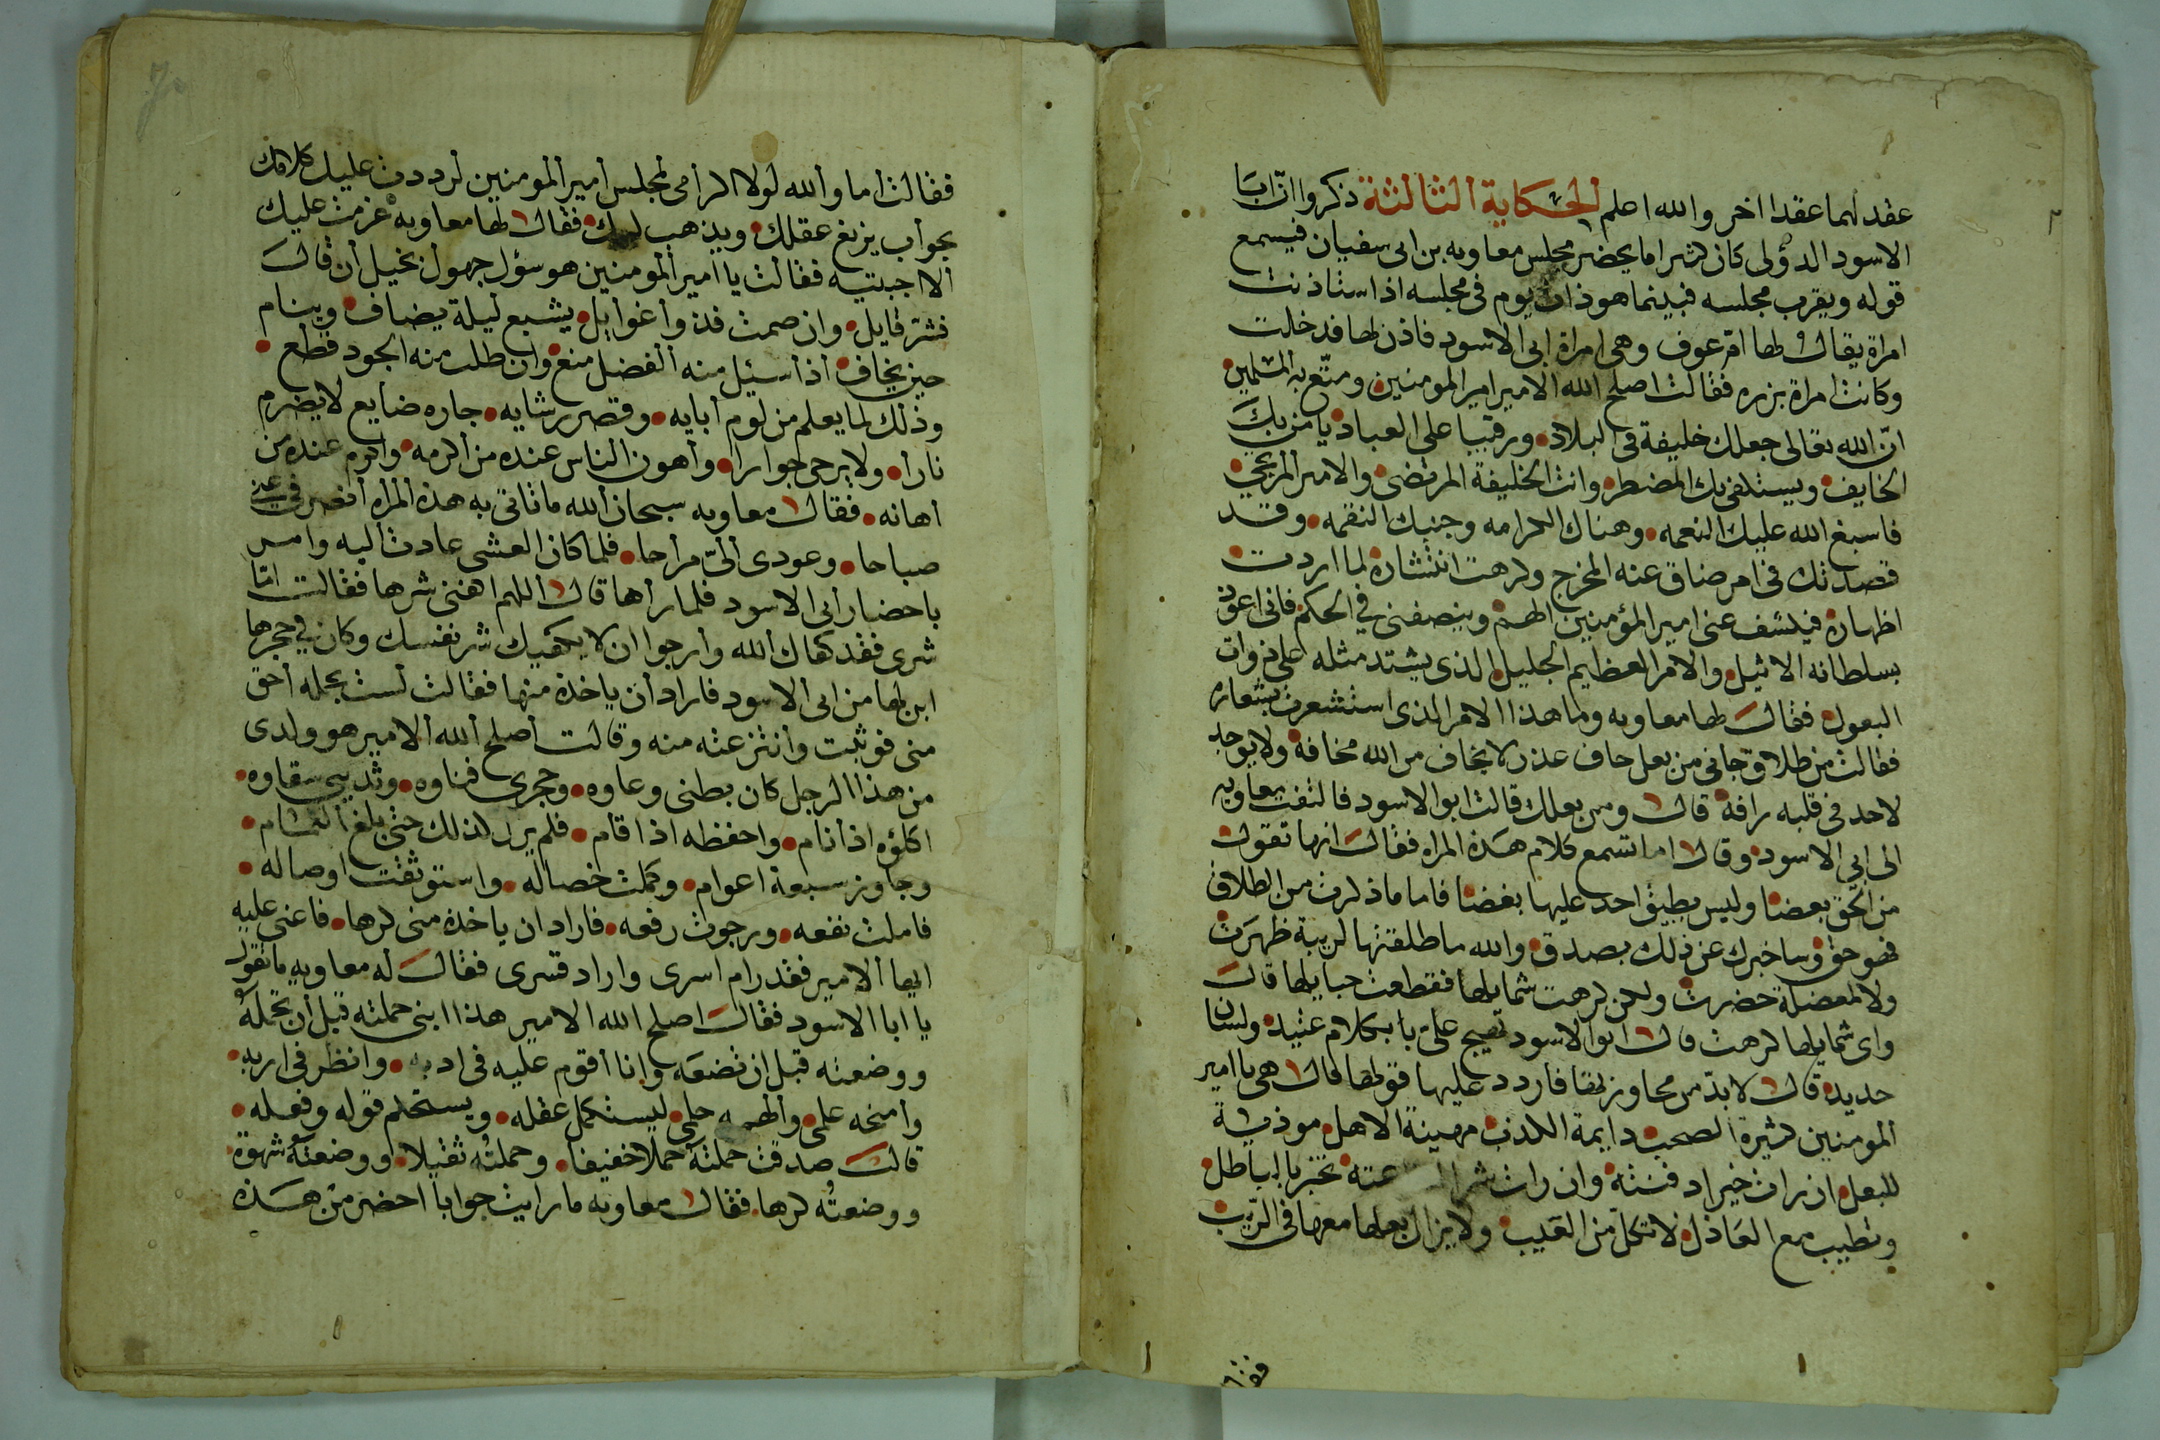 عقد لهما عقدا اخر والله اعلم الحكاية الثالثة ذكروا انّ ابا
الاسود الدؤلى كان كثيرا ما يحضر مجلس معاويه بن ابى سفيان فيسمع
قوله ويقرب مجلسه فبينما هو ذات يوم فى مجلسه اذ استاذنت
امراة يقال لها امّ عوف وهى امراة ابى الاسود فاذن لها فدخلت
وكانت امراة برزه فقالت اصلح الله الامير امير المومنين ومتّع به المسلمين
انّ الله تعالى جعلك خليفة فى البلاد ورقيبا على العباد يامن بك
الخايف ويستكفى بك المضطر وانت الخليفة المرتضى والامير المرتجى
فاسبغ الله عليك النعمه وهناك الكرامه وجنبك النقمه وقد
قصدتك فى امر ضاق عنه المخرج وكرهت انتشاره لما اردت
اظهاره فيكشف عنى امير المؤمنين الهم وينصفنى فى الحكم فانى اعوذ
بسلطانه الاثيل والامر العظيم الجليل الذى يشتد مثله على ذوات
البعول فقال لها معاويه وما هذا الامر الذى استشعرت بشعاره
فقالت من طلاق جانى من بعل جاف عذر لا يخاف من الله مخافة ولا يوجد
لاحد فى قلبه رافة قال ومن بعلك قالت ابو الاسود فالتفت معاويه
الى ابى الاسود وقال اما تسمع كلام هذه المراه فقال انها تقول
من الحق بعضا وليس يطيق احد عليها بغضا فاما ما ذكرت من الطلاق
فهو حق وساخبرك عن ذلك بصدق والله ما طلقتها لريبة ظهرت
ولا لمعضلة حضرت ولكن كرهت شمايلها فقطعت حبايلها قال
واى شمايلها كرهت قال ابو الاسود تهيج علىّ با بكلام عتيد ولسان
حديدة قال لابدّ من محاورتها فاردد عليها قولها قال هى يا امير
المومنين كثيرة الصحب دايمة الكذب مهينة الاهل موذية
للبعل ان رات خيرا دفنته وان رات شرا تخبر بالباطل
وتطيب مع العاذل لا تكل من العيب ولا يزال بعلها معها فى الريب
فقالت
فقالت أما والله لولا اكرامى لمجلس أمير المومنين لرددت عليك كلامك
بجواب يزيغ عقلك ويذهب لبك فقال لها معاويه عزمت عليك
الا اجبتيه فقالت يا امير المومنين هو سؤل جهول بخيل أن قال
فشرّ قايل وان صمت فذو أغوايل يشبع ليلة يضاف وينام
حين يخاف أذا سئل منه الفضل منع وان طلب منه الجود قطع
وذلك لما يعلم من لوم أبايه وقصر رشايه جاره ضايع لا يضرم
نارا ولا يرعى جوارا وأهون الناس عنده من اكرمه واكرم عنده من
اهانه فقال معاويه سبحان الله ما تاتى به هذه المراه أنصرفى عنى
صباحا وعودى ألىّ مراحا فلما كان العشى عادت أليه وامر
باحضار أبى الاسود فلما رأها قال أللهم اهننى شرها فقالت امّا
شرى فقد كفاك ألله وأرجوا ان لا يكفيك شر نفسك وكان فى حجرها
ابن لها من ابى الاسود فاراد أن ياخذه منها فقالت لست بحمله أحق
منى فوثبت وأنتزعته منه وقالت أصلح ألله ألامير هو ولدى
من هذا الرجل كان بطنى وعاوه وحجرى فناوه وثديى سقاوه
اكلؤه اذا نام واحفظه اذا قام فلم يزل لذلك حتى بلغ التمام
وجاوز سبعة اعوام وكملت خصاله واستوثقت اوصاله
فاملت نفعه ورجوت رفعه فاراد ان ياخذه منى كرها فاعنى عليه
ايها ألامير فقد رام اسرى واراد قسرى فقال له معاويه ما تقول
يا ابا الاسود فقال اصلح الله الامير هذا ابنى حملته قبل أن تحمله
ووضعته قبل ان تضعه وانا أقوم عليه فى ادبه وانظر فى اربه
وأمنحه على والهمه حلمى ليستكمل عقله ويستحكم قوله وفعله
قالت صدقت حملته حملا خفيفا وحملتُه ثقيلا ووضعته شهوة
ووضعتُه كرها فقال معاويه ما رايت جوابا احضر من هذه